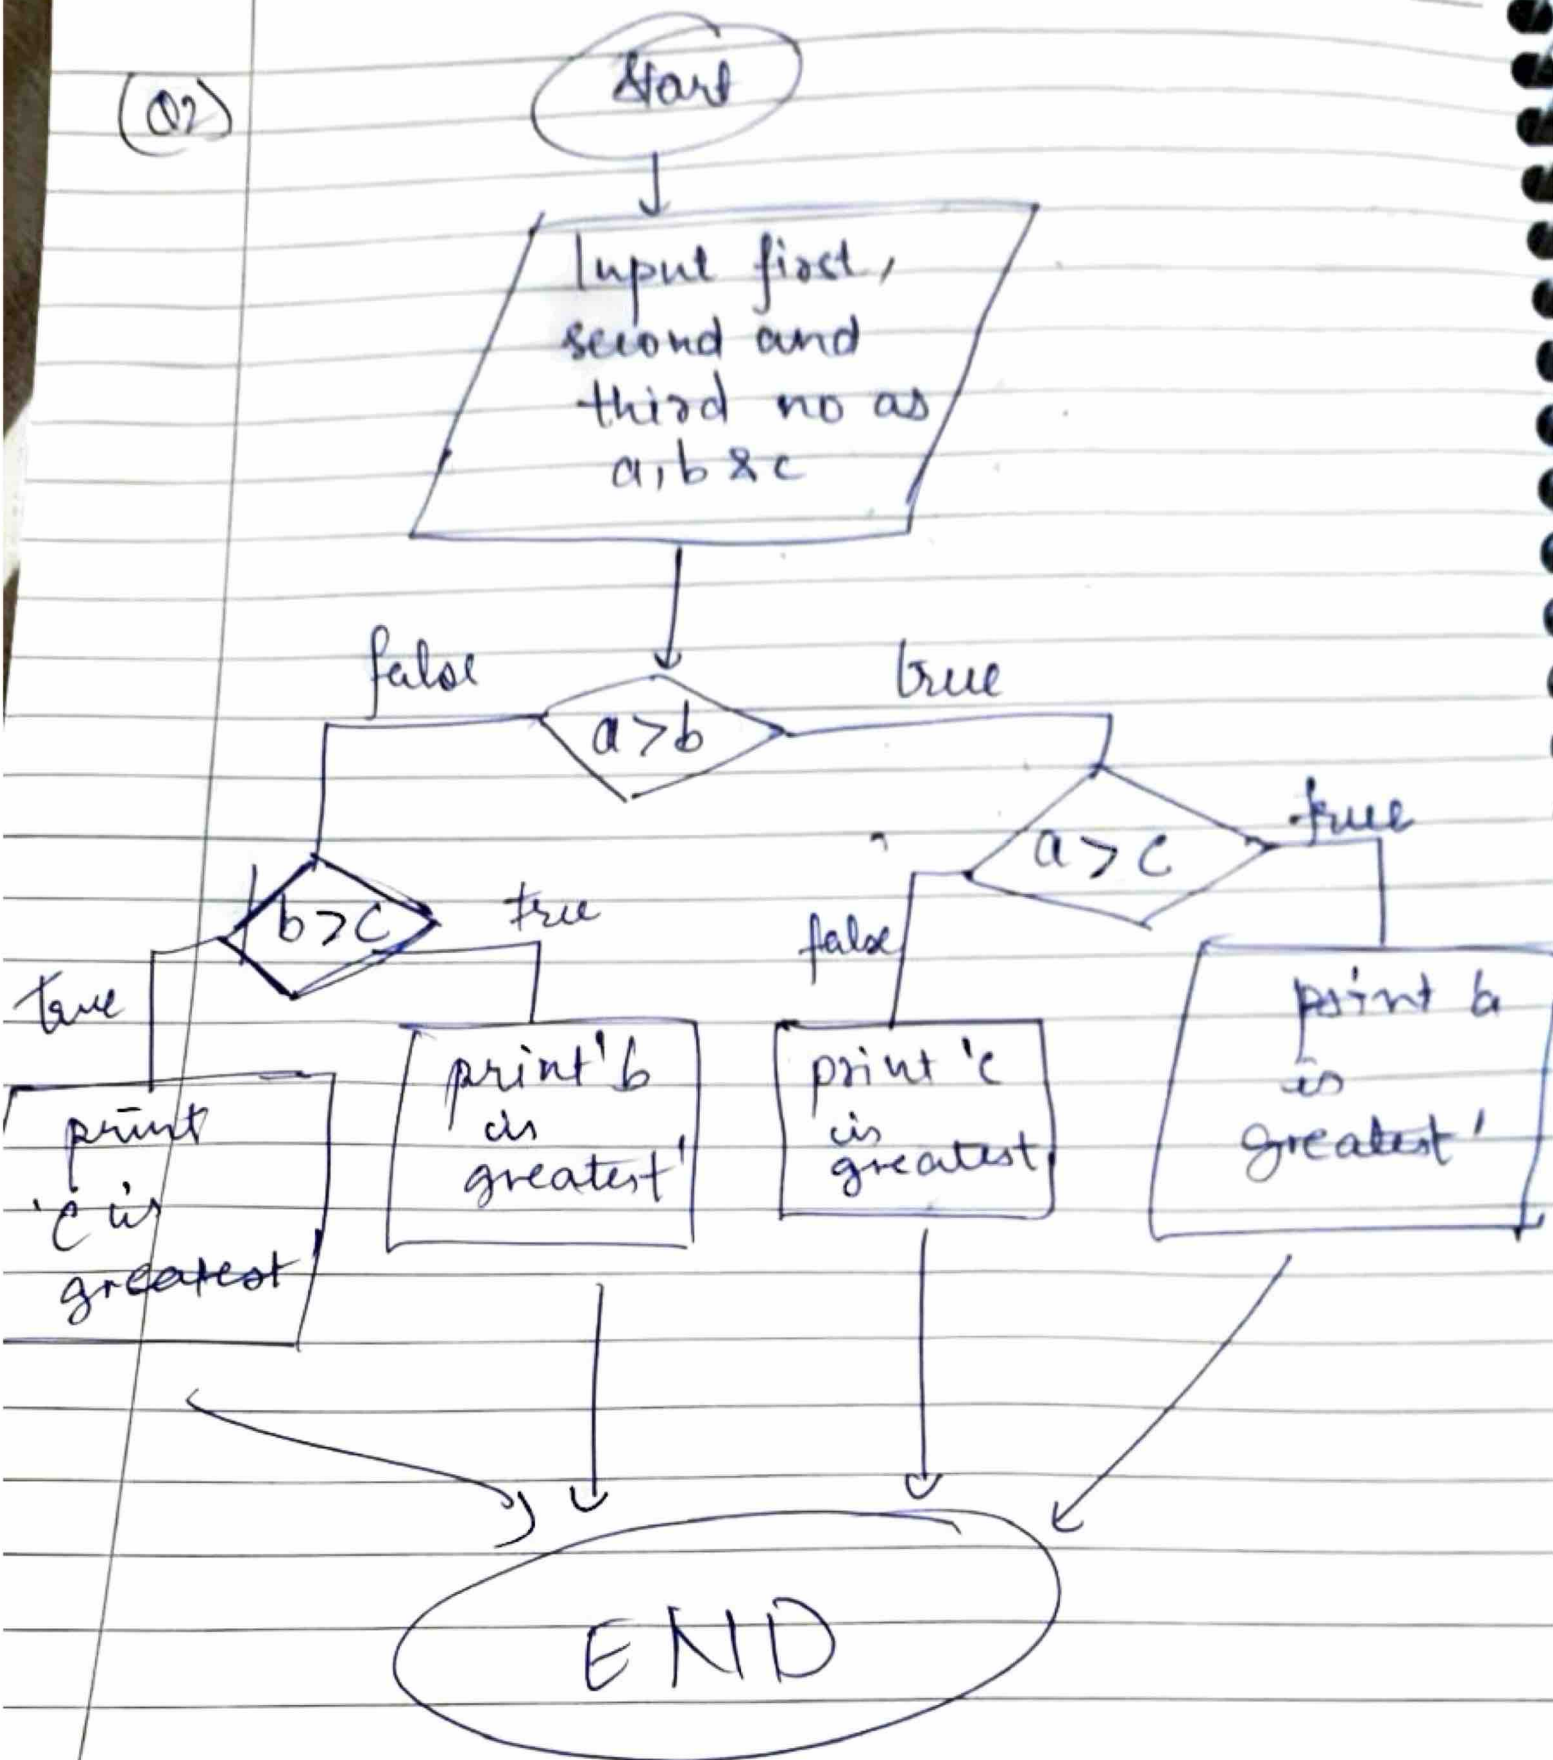 (Q2)
Start
Input first,
second and
third no as
a, b & c
false
true
a>b
b>c
true
true
a>c
false
true
print
'c is
greatest'
print 'b
is
greatest'
print 'c
is
greatest
print a
is
greatest'
END